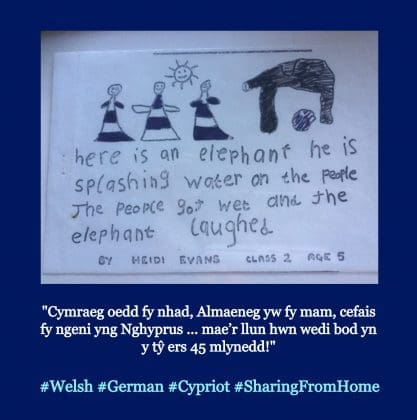 here is an elephant he is
splashing water on the people
The people got wet and the
elephant laughed
BY HEIDI EVANS CLASS 2 AGE 5
"Cymraeg oedd fy nhad, Almaeneg yw fy mam, cefais
fy ngeni yng Nghyprus ... mae'r llun hwn wedi bod yn
y tŷ ers 45 mlynedd!"
#Welsh #German #Cypriot #SharingFromHome